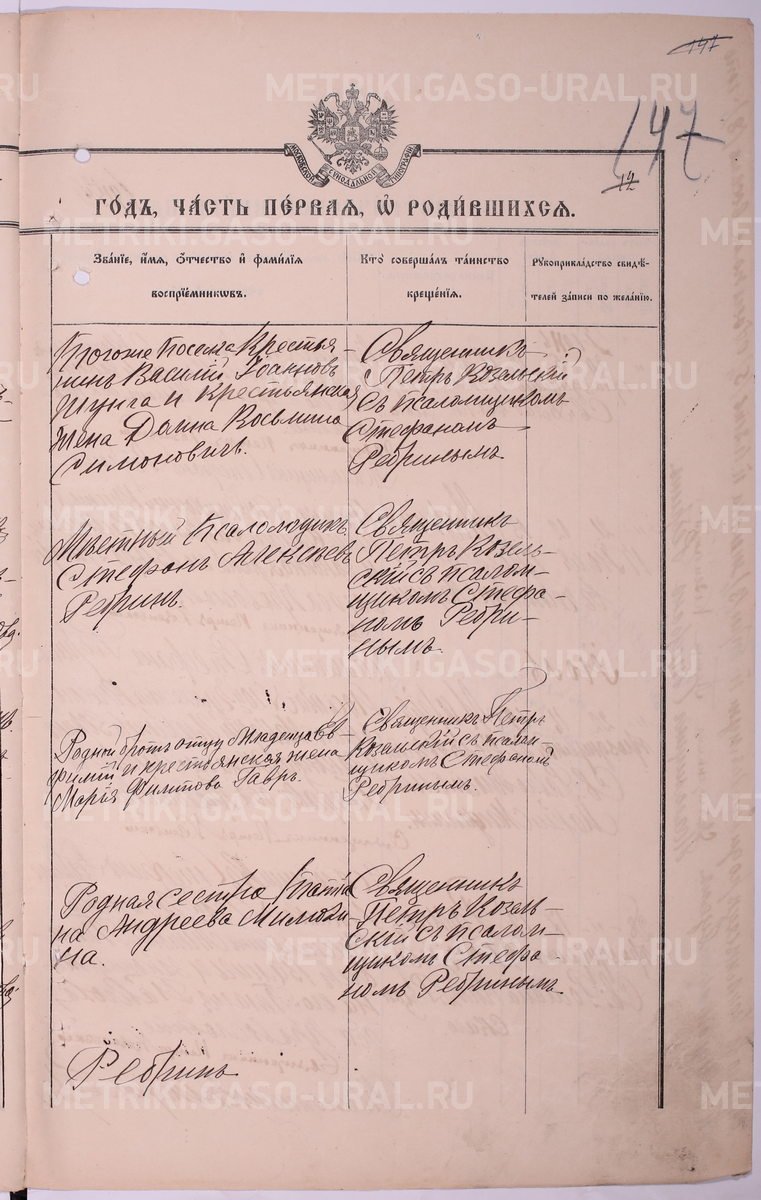 147
147
12
МОСКОВСКОЙ СѴНОДАЛЬНОЙ ТИПОГРАФІИ
ГОДЪ, ЧАСТЬ ПЕРВАЯ, Ѿ РОДИВШИХСЯ.
Званіе, имя, отчество и фамилія
воспріемниковъ.
Кто совершалъ таинство
крещенія.
Рукоприкладство свидѣ-
телей записи по желанію.
Тогоже Поселка Крестья-
нинъ Василій Іоанновъ
и Крестьянская
жена Домна Косьмина
Симоновичъ.
Священникъ
Петръ Козельскій
съ псаломщикомъ
Стефаномъ
Ребринымъ
Мѣстный Псаломщикъ
Стефанъ Алексѣевъ
Ребринъ.
Священникъ
Петръ Козель-
скій съ псалом-
щикомъ Стефа-
номъ Ребри-
нымъ.
Родной братъ отцу младенца Ев-
фимій и крестьянская жена
Марія Филипова Гавръ.
Священникъ Петръ
Козельскій съ псалом-
щикомъ Стефаномъ
Ребринымъ.
Родная сестра
на Андреева
на.
Священникъ
Петръ Козель-
скій съ псалом-
щикомъ Стефа-
номъ Ребринымъ
Ребринъ
METRIKI.GASO-URAL.RU